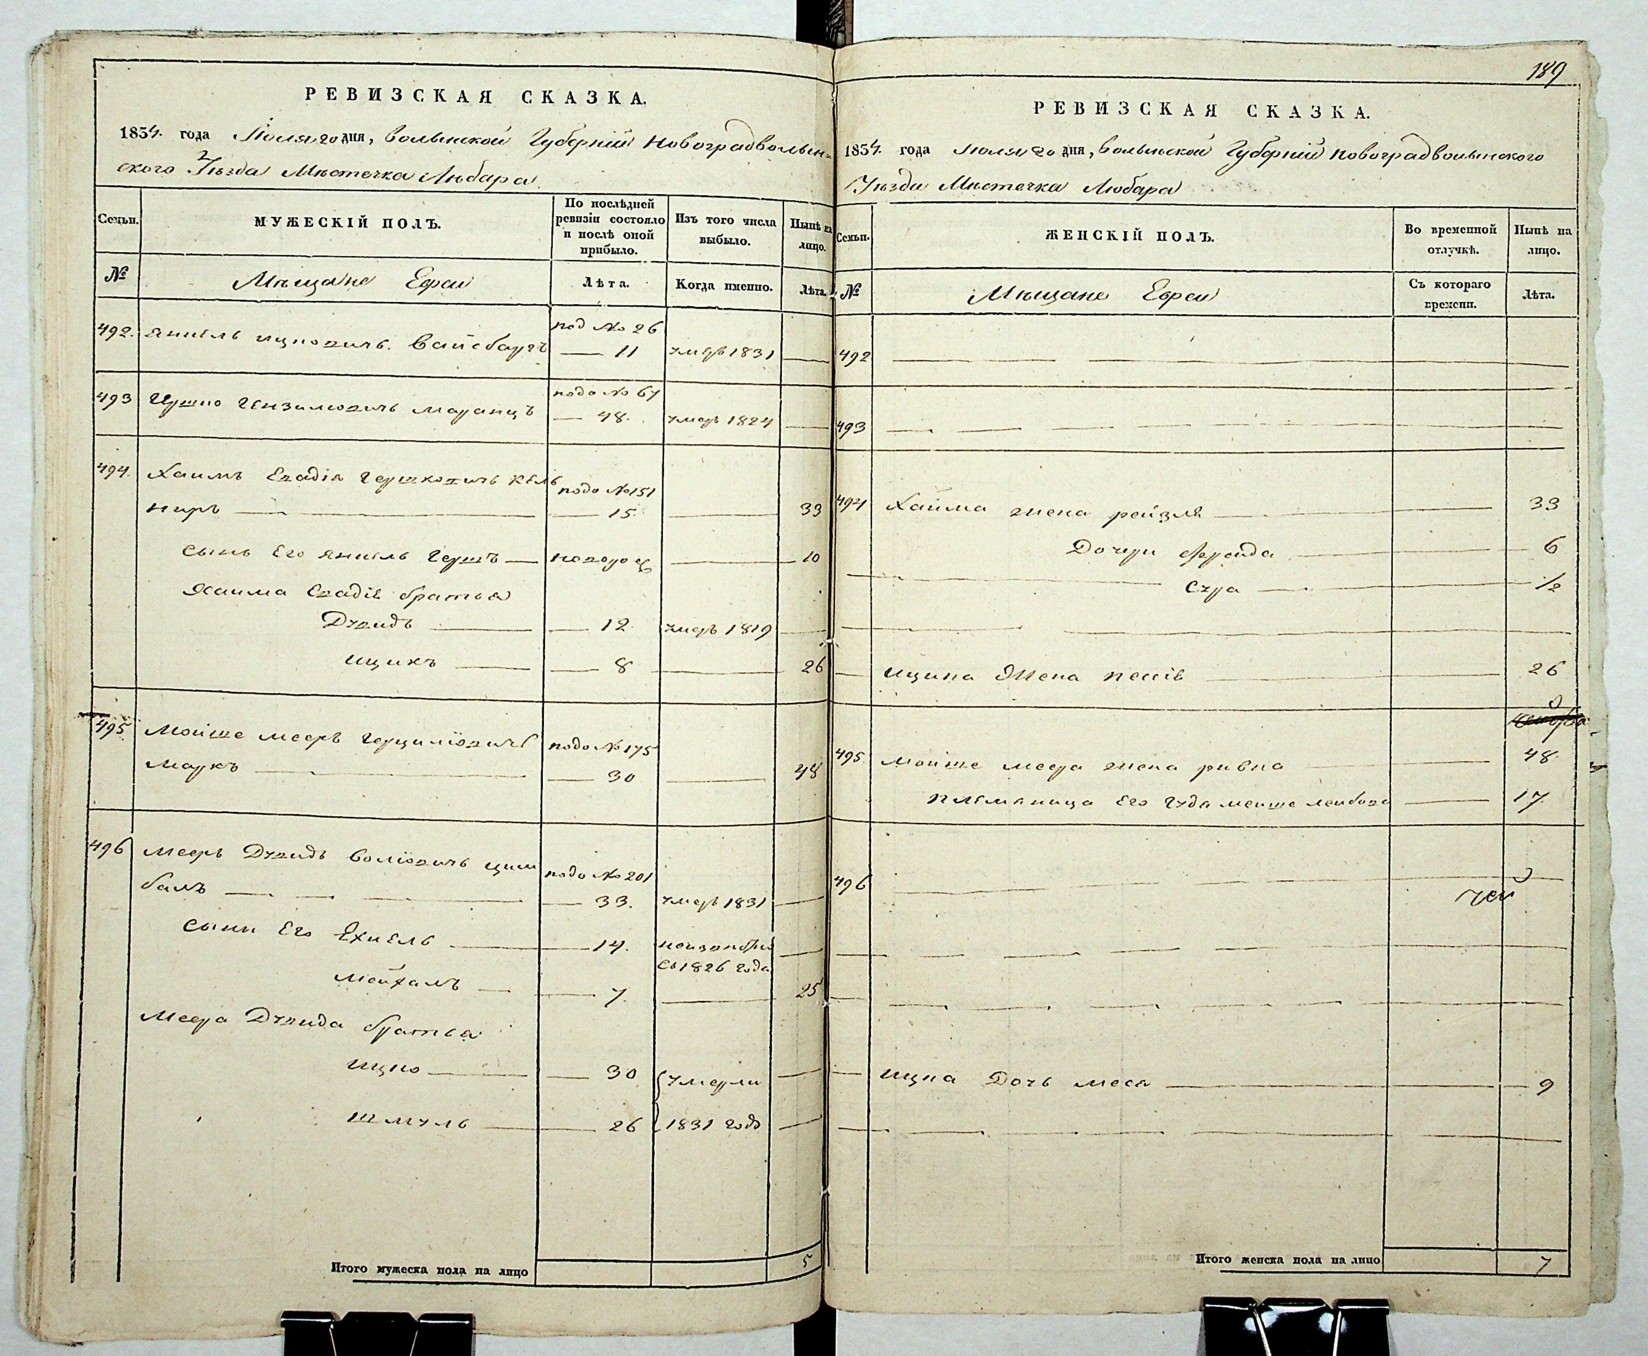 189
РЕВИЗСКАЯ СКАЗКА.
1834. года Июля 20 дня, Волынской Губерніи Новоградволын-
ского Уѣзда Мѣстечка Любара
Семьи.
МУЖЕСКІЙ ПОЛЪ.
По послѣдней ревизіи состояло и послѣ оной прибыло.
Изъ того числа выбыло.
Нынѣ на лицо.
№
Мѣщане Евреи
Лѣта.
Когда именно.
Лѣта.
492. Янкель Ицковичъ
под № 26
11 умеръ 1831
493
подо № 67
48. умеръ 1824
494. Хаимъ Гершковичъ Кель
подо № 151
неръ 15 33
Сынъ Его Янкель Гершъ 10
Хаима братья
Дувидъ 12 умеръ 1819
Ицикъ 8 26
495 Мойше Мееръ
подо № 175
Маркъ 30 48
496 Мееръ Дувидъ Волiовичъ Цим
подо № 201
балъ 33. умеръ 1831
Сыни Его Ехиель 14.
съ 1826 года
7. 25
Меера Дувида братья
Ицко 30 умерли
Шмуль 26 1831 года
Итого мужеска пола на лицо 5
РЕВИЗСКАЯ СКАЗКА.
1834. года Июля 20 дня, Волынской Губерніи Новоградволынского
Уѣзда Мѣстечка Любара
Семьи.
ЖЕНСКІЙ ПОЛЪ.
Во временной отлучкѣ.
Нынѣ на лицо.
№
Мѣщане Евреи
Съ котораго времени.
Лѣта.
492
493
494 Хаима жена Рейзля 33
Дочери Фрейда 6
Сура ½
Ицика Жена Песiе 26
495 Мойше Меера жена Ривка 48.
племяница Его 17.
496
Ицка Дочь 9
Итого женска пола на лицо 7